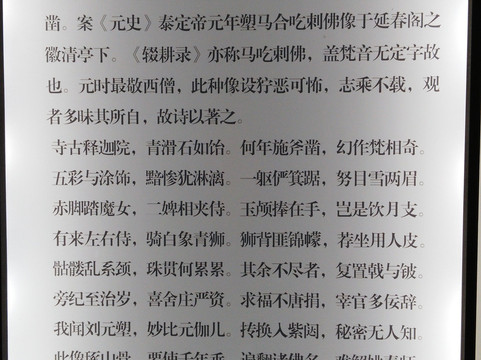 凿。案《元史》泰定帝元年塑马合吃刺佛像于延春阁之
徽清亭下。《辍耕录》亦称马吃刺佛，盖梵音无定字故
也。元时最敬西僧，此种像设狞恶可怖，志乘不载，观
者多昧其所自，故诗以著之。
寺古释迦院，青滑石如饴。何年施斧凿，幻作梵相奇。
五彩与涂饰，黯惨犹淋漓。一躯俨箕踞，努目雪两眉。
赤脚踏魔女，二婢相夹侍。玉颅捧在手，岂是饮月支。
有来左右侍，骑白象青狮。狮背匪锦幪，荐坐用人皮。
骷髅乱系颈，珠贯何累累。其余不尽者，复置戟与铍。
旁纪至治岁，喜舍庄严资。求福不唐捐，宰官多佞辞。
我闻刘元塑，妙比元伽儿。抟换入紫闼，秘密无人知。
此像琢山骨，要使千年垂。遍翻诸佛名，难解姚秦师。